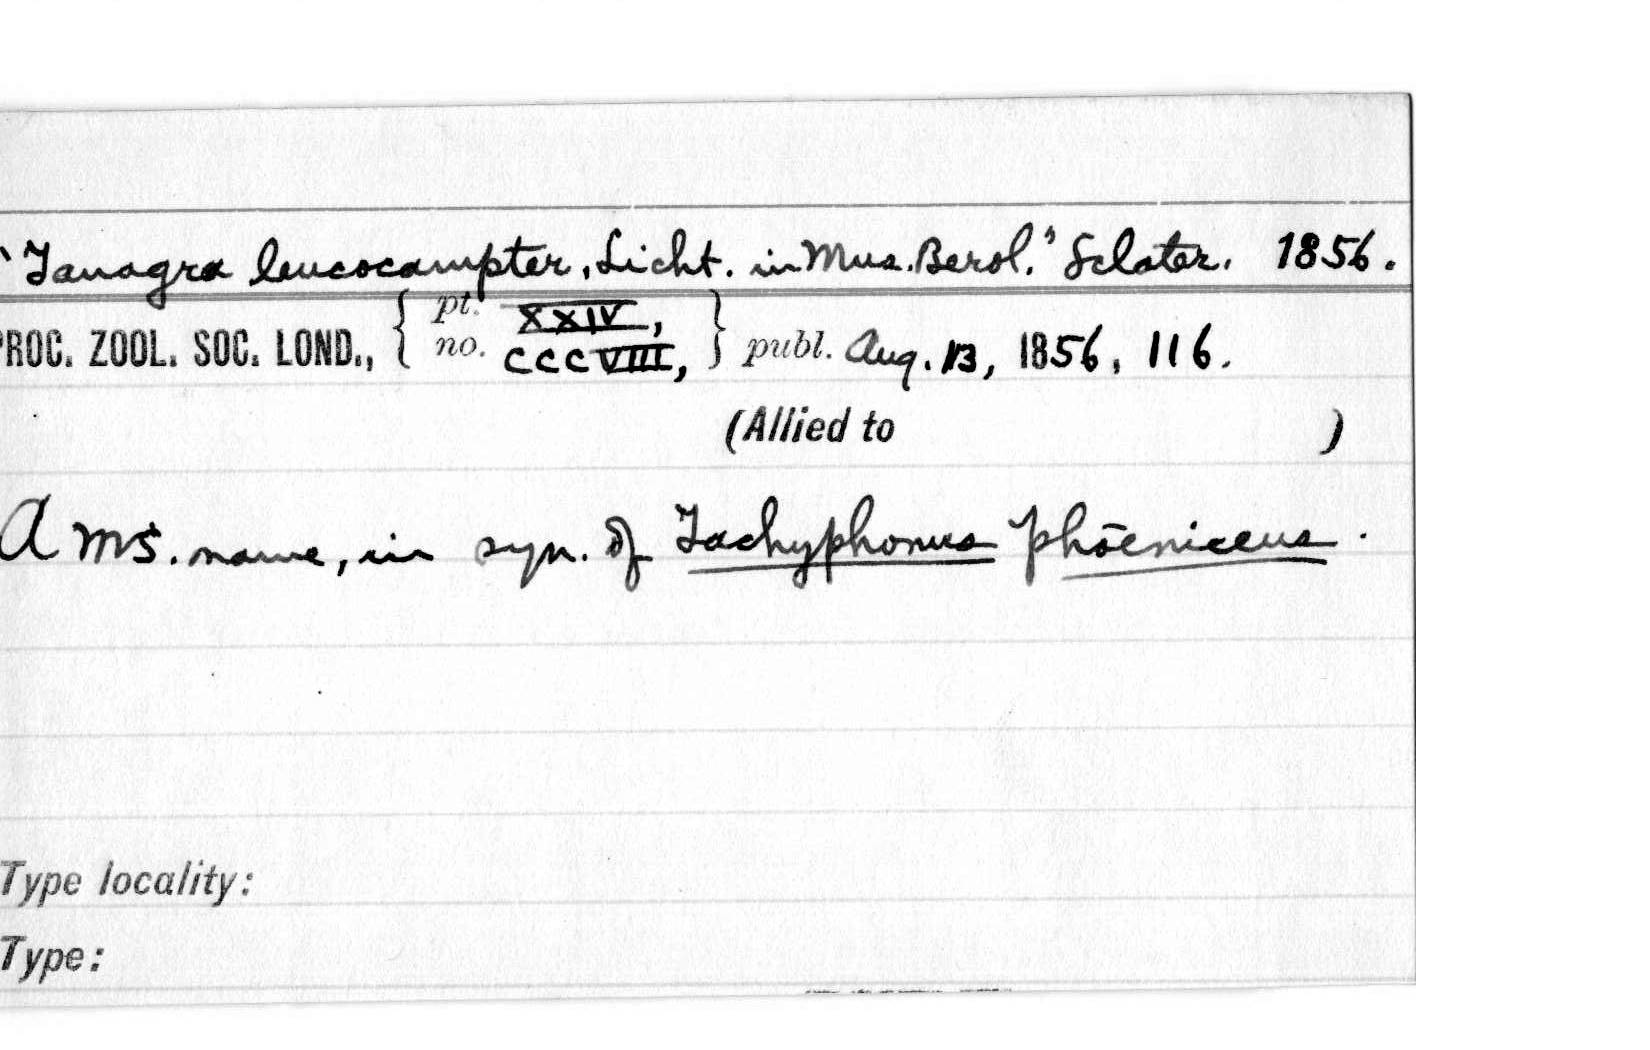 "Tanagra leucocampter, Licht. in Mus. Berol." Sclater. 1856.
PROC. ZOOL. SOC. LOND., { pt. XXIV, no. CCCVIII, } publ. Aug. 13, 1856, 116.
(Allied to )
A MS. name, in syn. of Tachyphonus phœniceus.
Type locality:
Type: